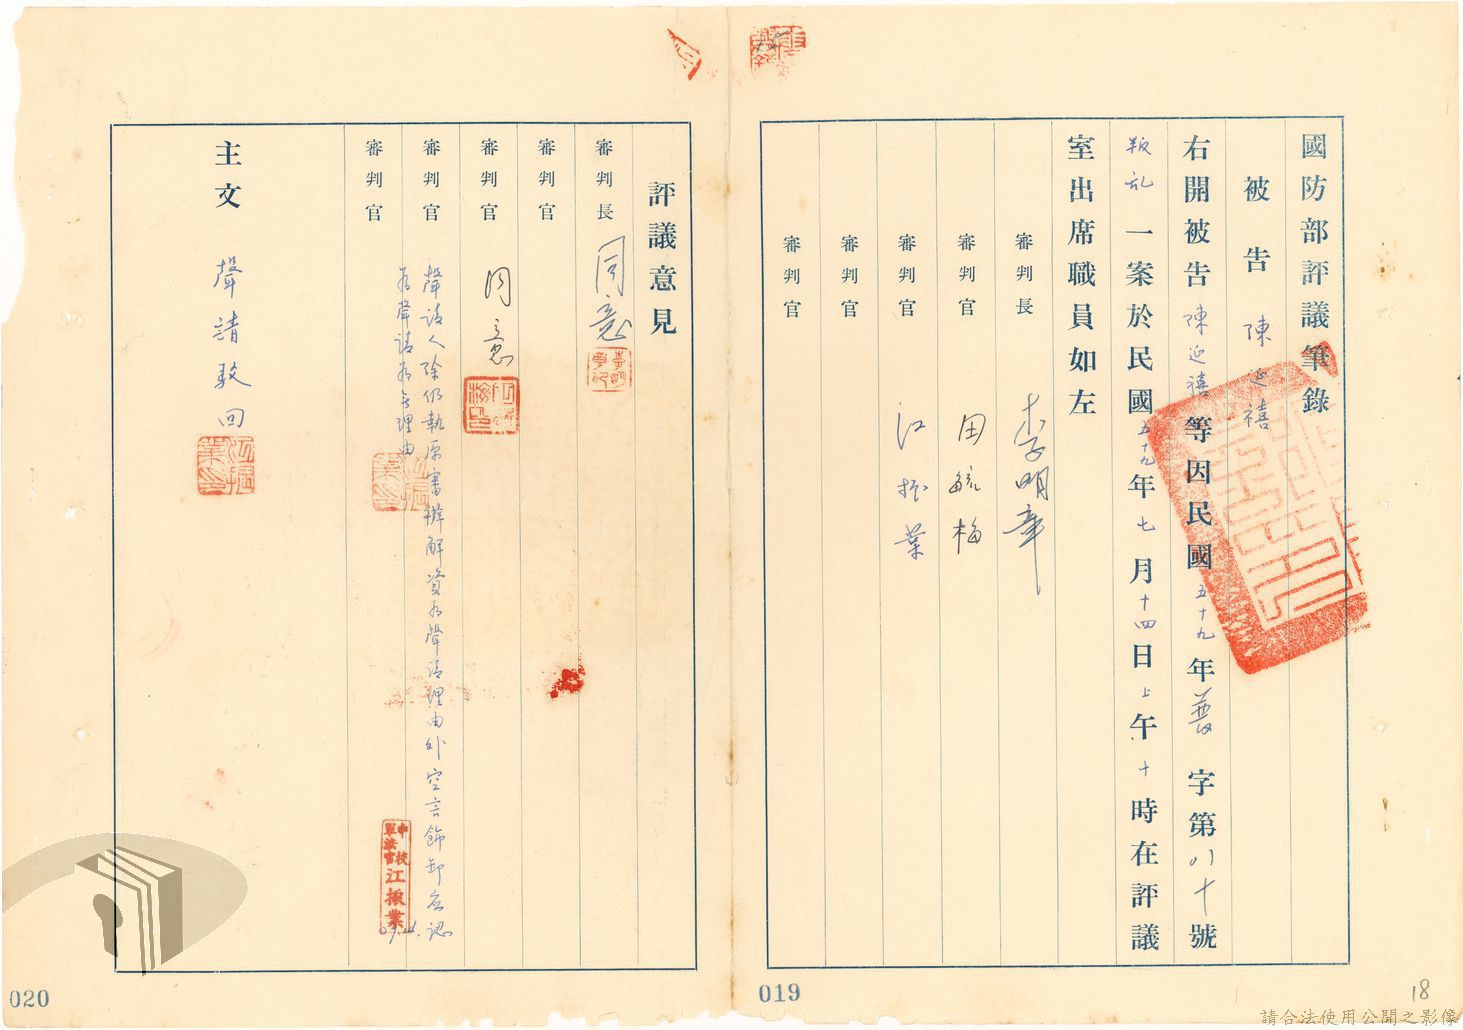 國防部評議筆錄
被告 陳延禧
右開被告陳延禧等因民國五十九年普字第八十號
叛乱一案於民國五十九年七月十四日上午十時在評議
室出席職員如左
審判長 李明章
審判官 田毓梅
審判官 江振業
審判官
審判官
019
18
評議意見
審判長 同意
審判官
審判官 同意
審判官 聲請人除仍執原審辯解資為聲請理由外空言飾卸应認
為聲請為無理由
中校
軍法官
江振業
審判官
主文 聲請駁回
020
請合法使用公開之影像